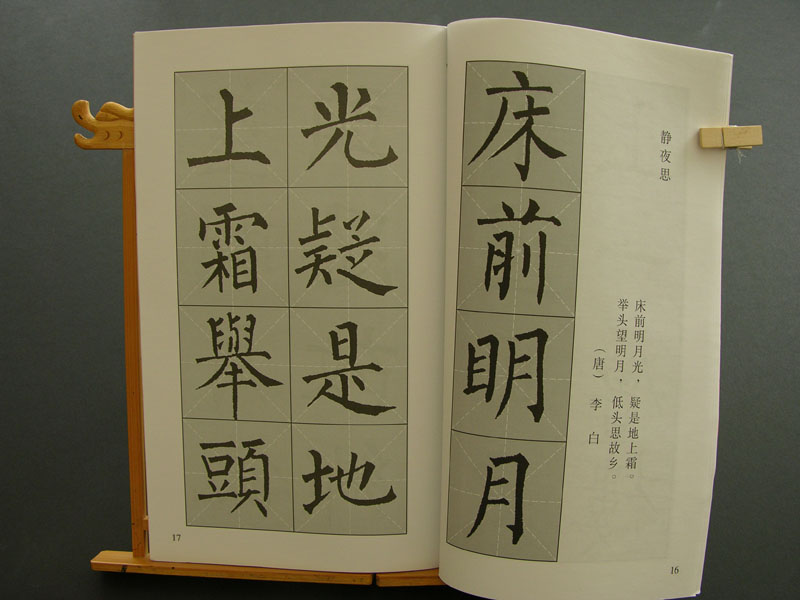 静夜思
床前明月光，疑是地上霜。
举头望明月，低头思故乡。
（唐）李白
床前眀月
16
光疑是地
上霜舉頭
17